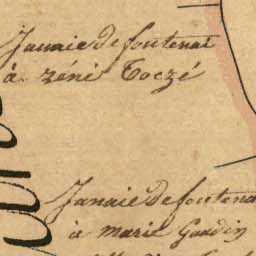 Janaie de fontenai
à zéni Toczé
Janaie de fontenai
à marie Gaudin